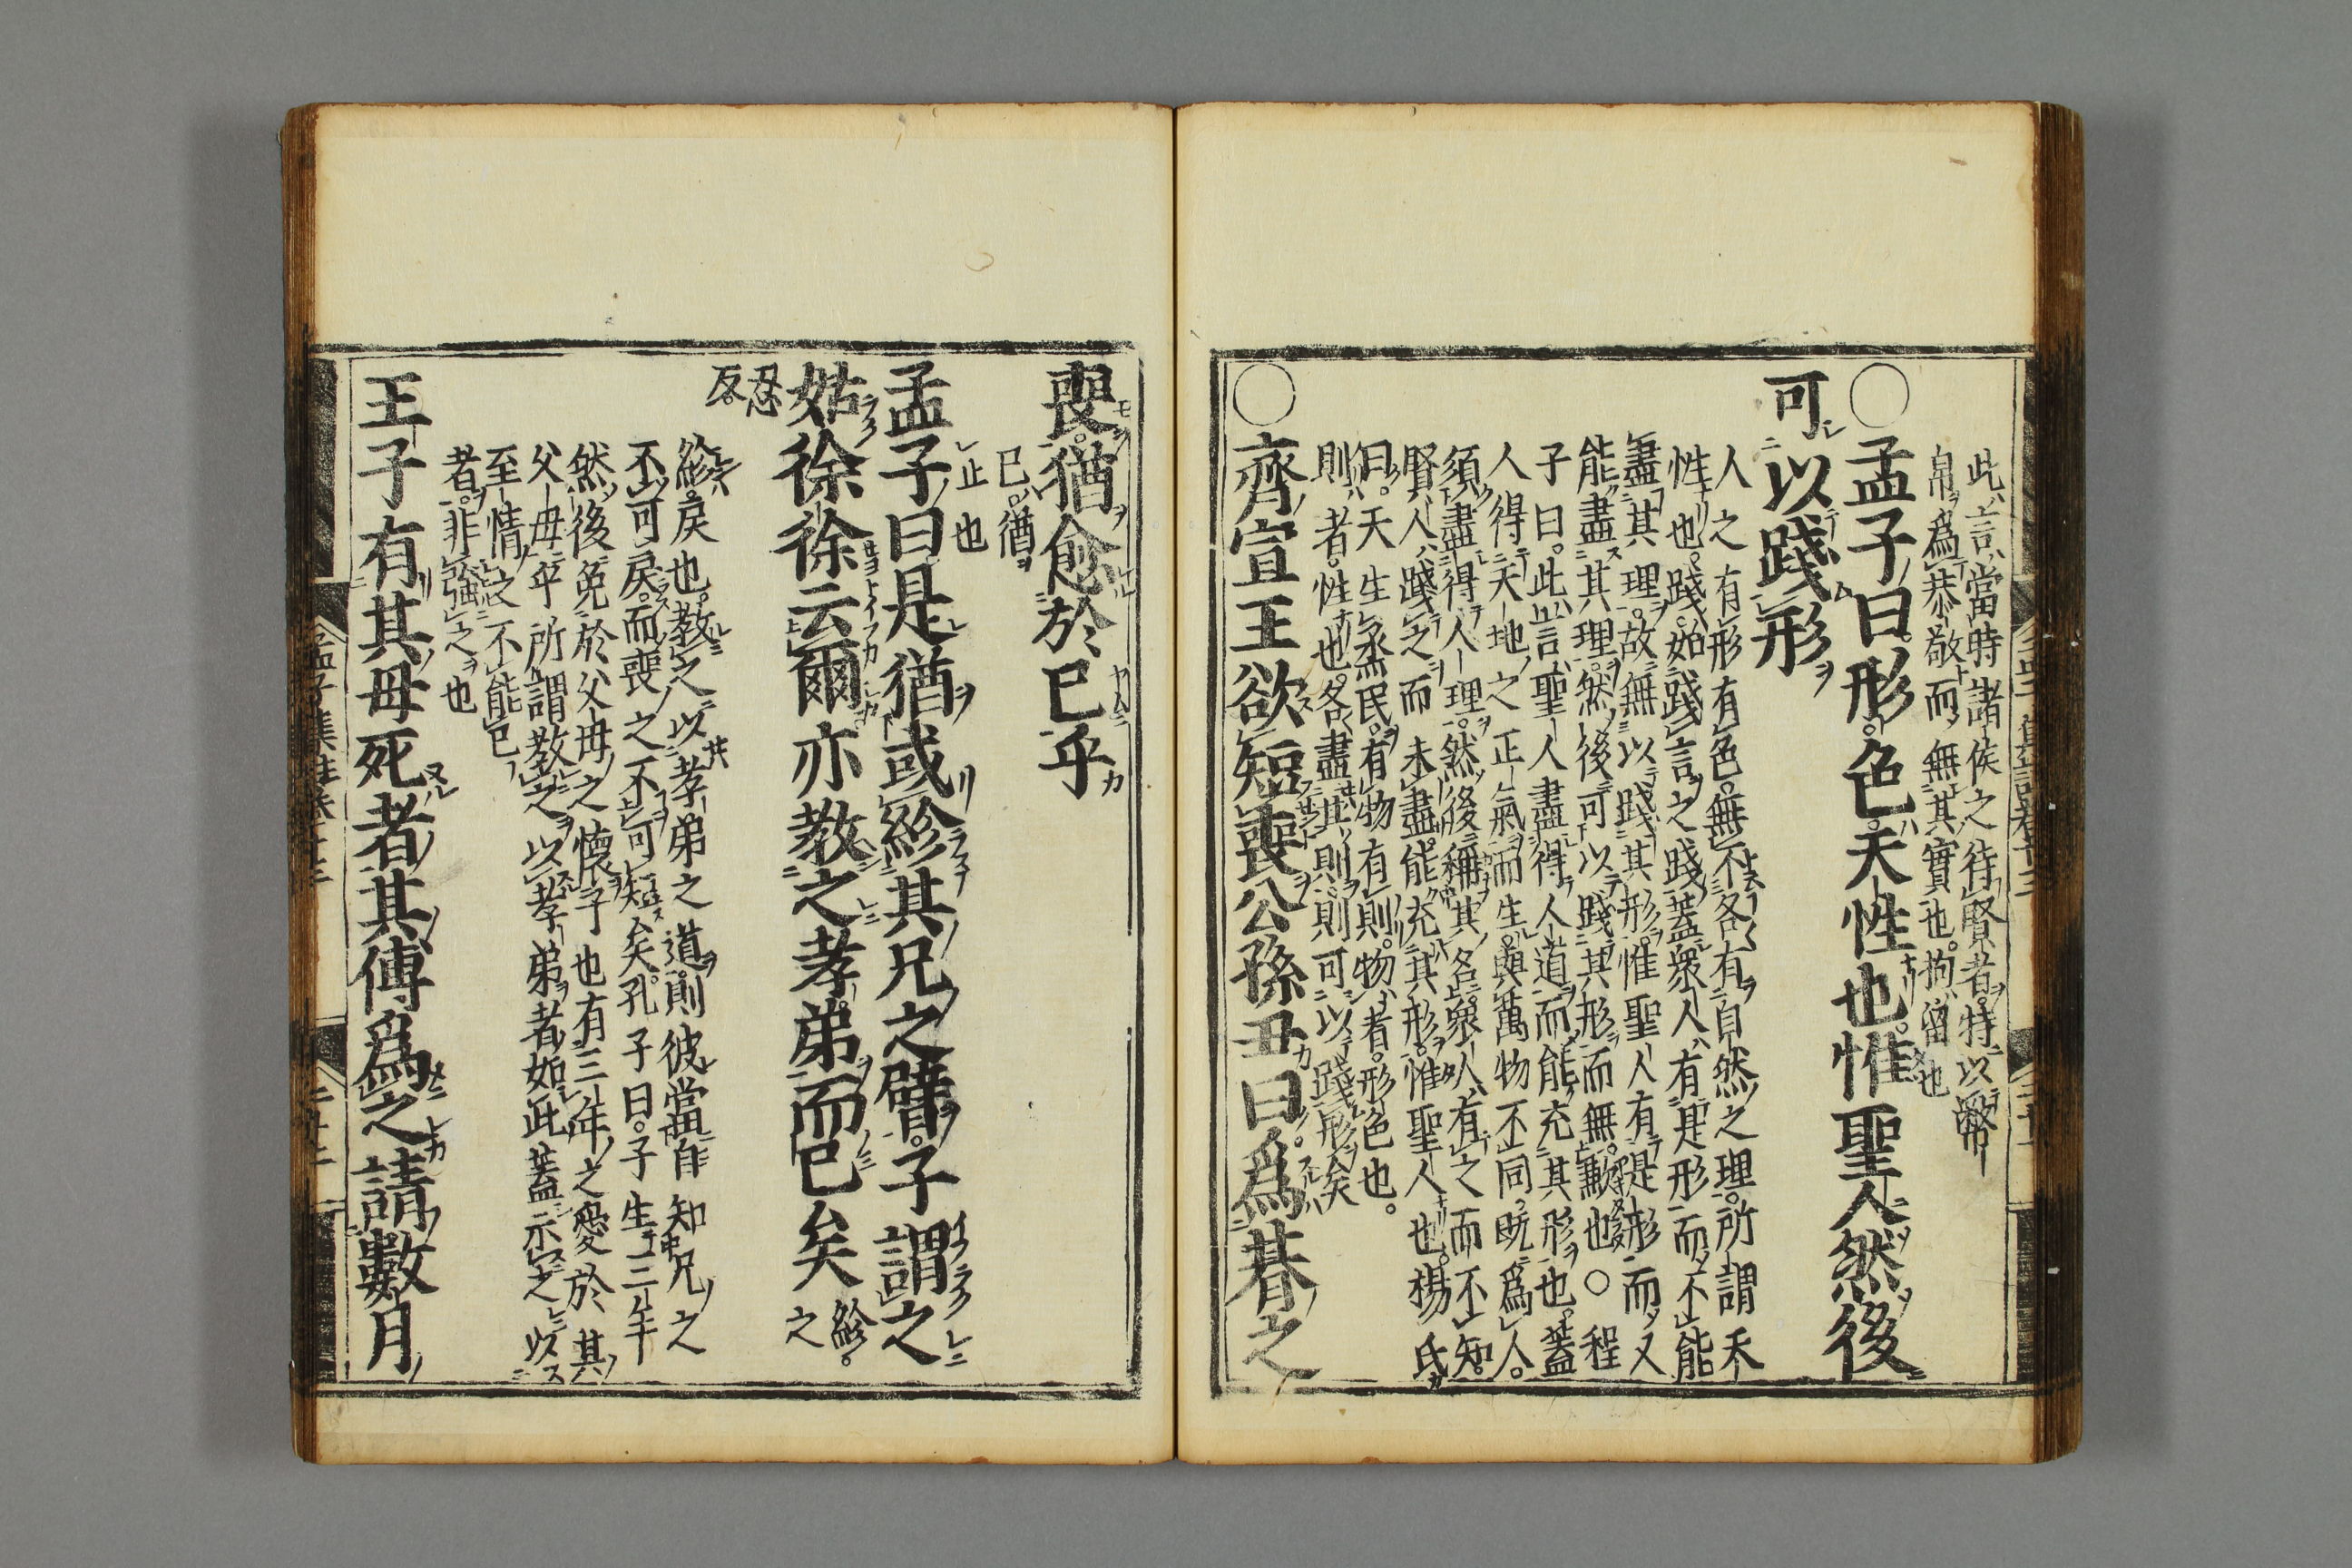 此言當時諸侯之待賢者特以幣
帛爲恭敬而無其實也拘留也
○孟子曰形色天性也惟聖人然後
可以踐形
人之有形有色無不各有自然之理所謂天
性也踐如踐言之踐蓋衆人有是形而不能
盡其理故無以踐其形惟聖人有是形而又
能盡其理然後可以踐其形而無歉也○程
子曰此言聖人盡得人道而能充其形也蓋
人得天地之正氣而生與萬物不同既爲人
須盡得人理然後稱其名衆人有之而不知
賢人踐之而未盡能充其形惟聖人也楊氏
曰天生烝民有物有則物者形色也
則者性也各盡其則則可以踐形矣
○齊宣王欲短喪公孫丑曰爲朞之
喪猶愈於已乎
已猶
止也
孟子曰是猶或紾其兄之臂子謂之
姑徐徐云爾亦教之孝弟而已矣紾之
忍反
紾戾也教之以孝弟之道則彼當自知兄之
不可戾而喪之不可短矣孔子曰子生三年
然後免於父母之懷予也有三年之愛於其
父母乎所謂教之以孝弟者如此蓋示之以
至情之不能已
者非強之也
王子有其母死者其傅爲之請數月
孟子集註卷十三